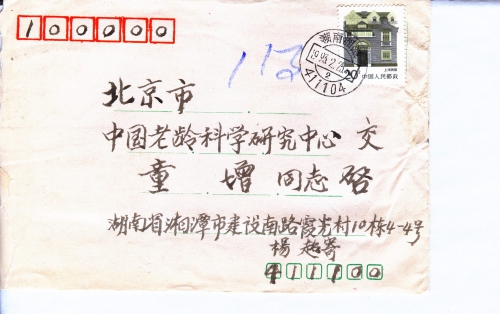 100000
113
湖南
1993.2.
411104
20
中国人民邮政
北京市
中国老龄科学研究中心 交
童 增 同志 启
湖南省湘潭市建设南路霞光村10栋4-4号
杨 超寄
411100